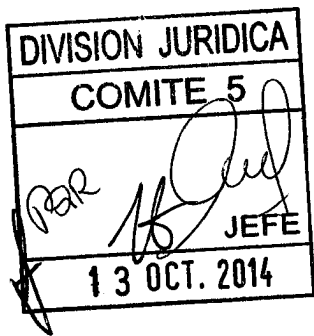 DIVISION JURIDICA
COMITE 5
POR
JEFE
13 OCT. 2014